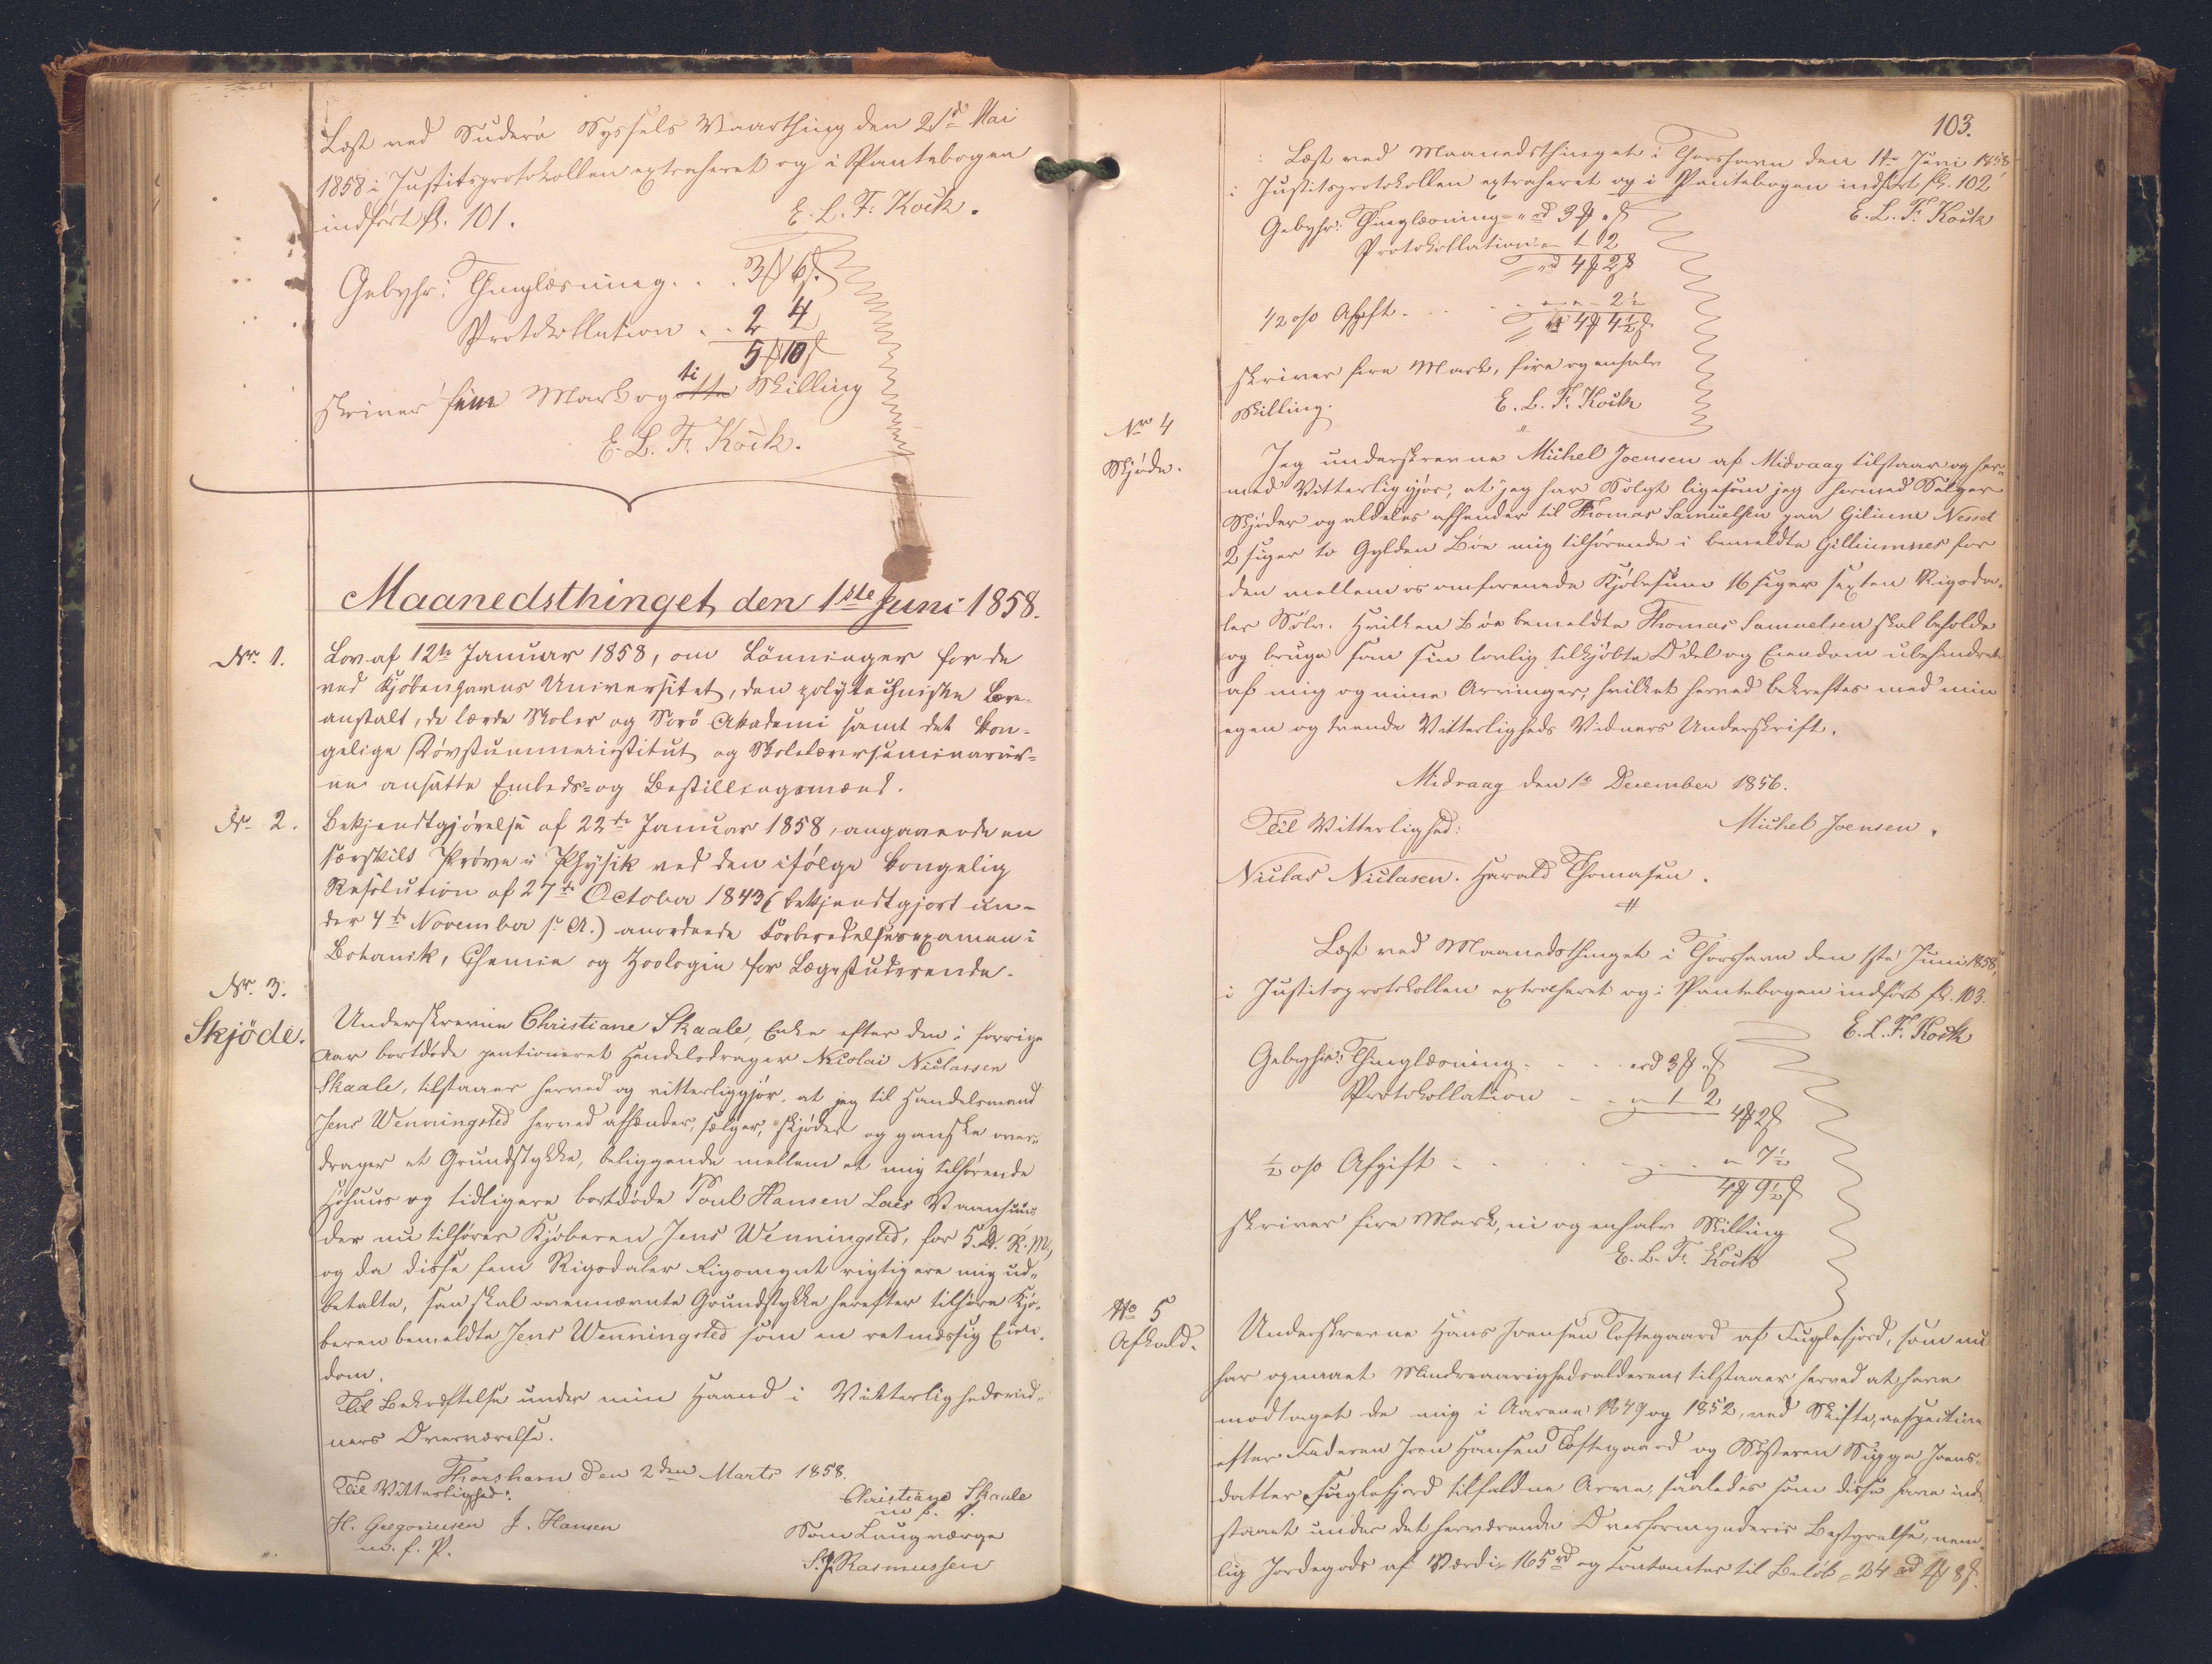 Læst ved Suderø Syssels Vaarthing den 21de Mai
1858 i Justitsprotokollen extraheret og i Pantebogen
indført fol. 101.
E. L. F. Kock.
Gebyhr: Thinglæsning . . 3 ß 6 ß.
Protokollation . . 2 4
5 10 ß
skriver fem Mark og otte ti Skilling
E. L. F. Kock.
Maanedsthinget den 1ste Juni 1858.
Nr. 1.
Lov af 12te Januar 1858, om Lønninger for de
ved Kjøbenhavns Universitet, den polytechniske Lære-
anstalt, de lærde Skoler og Sorø Akademi samt det kon-
gelige Døvstummeinstitut og Skolelærerseminarier-
ne ansatte Embeds- og Bestillingsmænd.
Nr. 2.
Bekjendtgjørelse af 22de Januar 1858, angaaende en
særskilt Prøve i Physik ved den ifølge kongelig
Resolution af 27de October 1843 (bekjendtgjort un-
der 4de November s. A.) anordnede Forberedelsesexamen i
Botanik, Chemie og Zoologie for Lægestuderende.
Nr. 3.
Skjöde.
Underskrevne Christiane Skaale, Enke efter den i forrige
Aar bortdøde pentioneret Handelsdrager Nicolai Niclassen
Skaale, tilstaaer herved og vitterliggjør, at jeg til Handelsmand
Jens Wenningsted herved afhænder, sælger, skjøder og ganske over-
drager et Grundstykke, beliggende mellem et mig tilhørende
Høhuus og tidligere bortdøde Poul Hansen Laes Vaanhuus
der nu tilhører Kjøberen Jens Wenningsted, for 5 rd. R. M,
og da disse fem Rigsdaler Rigsmynt rigtig ere mig ud-
betalte, saa skal ovennævnte Grundstykke herefter tilhøre Kjø-
beren bemeldte Jens Wenningsted som en retmæssig Eien-
dom.
Til Bekræftelse under min Haand i Vitterlighedsvid-
ners Overværelse.
Thorshavn den 2den Marts 1858.
Til Vitterlighed:
Christiane Skaale
m. f. P.
H. Gregoriusen J. Hansen
m. f. P.
Som Laugværge
S. P. Rasmussen
103.
Læst ved Maanedsthinget i Thorshavn den 1te Juni 1858
i Justitsprotokollen extraheret og i Pantebogen indført fol. 102
E. L. F. Kock
Gebyhr: Thinglæsning " rd 3 ß " ß
Protokollation - " 1 - 2
" rd 4 ß 2 ß
1/2 o/o Afgift . . . . - " - 2 1/2
" 4 ß 4 1/2 ß
skriver fire Mark, fire og enhalv
Skilling.
E. L. F. Kock
Nr 4
Skjøde.
Jeg underskrevne Michel Joensen af Midvaag tilstaar og her-
med Vitterliggjør, at jeg har Solgt ligesom jeg hermed Sælger
Skjøder og aldeles afhender til Thomas Samuelsen paa Giliume Nesset
2 siger to Gylden Bøe mig tilhørende i bemeldte Gilliumnes for
den mellem os omforenede Kjøbesum 16 siger sexten Rigsda-
ler Sølv. Hvilken Bøe bemeldte Thomas Samuelsen skal beholde
og bruge som sin lovlig tilkjøbte Odel og Eiendom ubehindret
af mig og mine Arvinger, hvilket herved bekræftes med min
egen og tvende Vitterligheds Vidners Underskrift.
Midvaag den 1te December 1856.
Til Vitterlighed:
Michel Joensen.
Niclas Niclasen. Harald Thomasen.
Læst ved Maanedsthinget i Thorshavn den 1ste Juni 1858,
i Justitsprotokollen extraheret og i Pantebogen indført fol. 103.
E. L. F. Kock
Gebyhr: Thinglæsning . . . . " rd 3 ß " ß
Protokollation - . - " - 1 - 2
4 ß 2 ß
1/2 o/o Afgift . . . . . . - " 7 1/2
4 ß 9 1/2 ß
skriver fire Mark, ni og enhalv Skilling
E. L. F. Kock
No 5
Afkald.
Underskrevne Hans Joensen Toftegaard af Fuglefjord, som nu
har opnaaet Mindreaarighedsalderen, tilstaaer herved at have
modtaget de mig i Aarene 1849 og 1852, ved Skifte, respective
efter Faderen Joen Hansen Toftegaard og Søsteren Sigga Joens-
datter Fuglefjord tilfaldne Arve, saaledes som disse have ind-
staaet under det herværende Overformynderis Bestyrelse, nem-
lig Jordegods af Værdi 165 rd og Contanter til Beløb 24 rd 4 ß 8 ß.